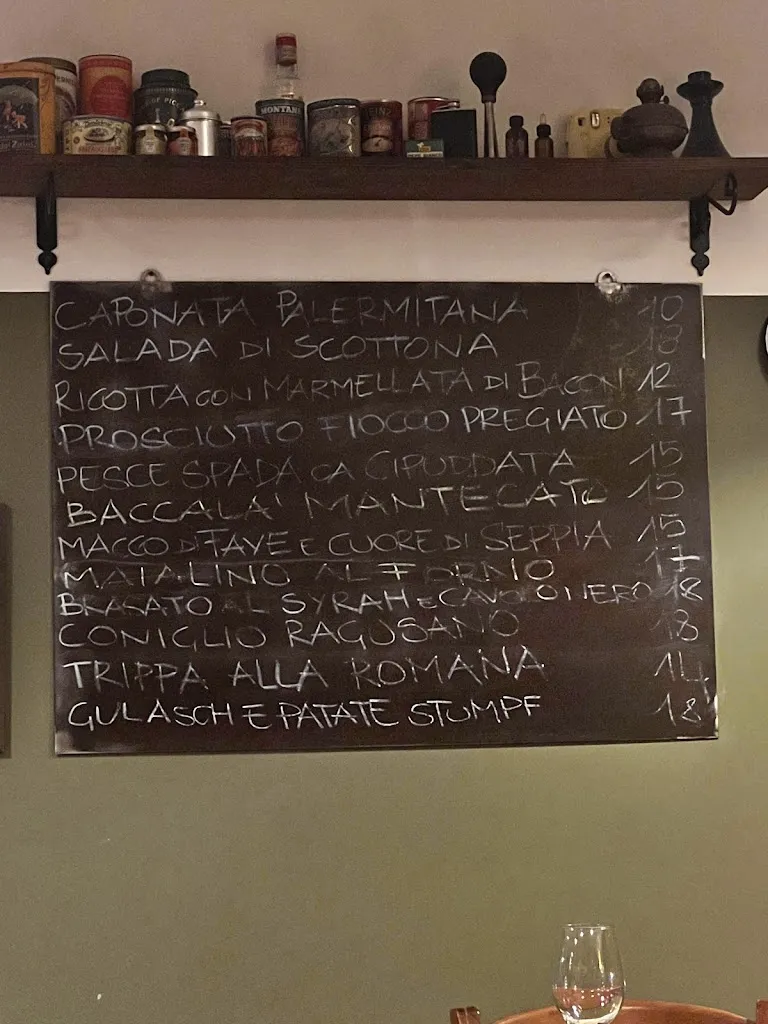 MONTANA
CAPONATA PALERMITANA 10
SALADA DI SCOTTONA 18
RICOTTA CON MARMELLATA DI BACON 12
PROSCIUTTO FIOCCO PREGIATO 17
PESCE SPADA CA CIPUDDATA 15
BACCALA' MANTECATO 15
MACCO DI FAVE E CUORE DI SEPPIA 15
MAIALINO AL FORNO 17
BRASATO AL SYRAH e CAVOLO NERO 18
CONIGLIO RAGUSANO 18
TRIPPA ALLA ROMANA 14
GULASCH E PATATE STUMPF 18